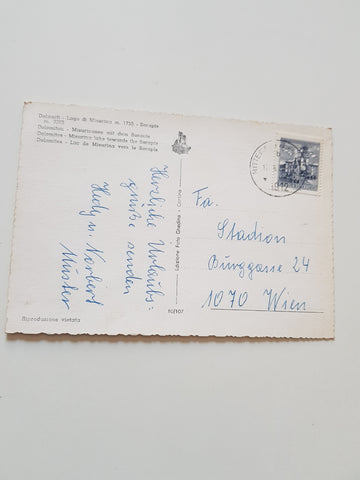 Dolomiti - Lago di Misurina m. 1755 - Sorapis
m. 3205
Dolomiten - Misurinasee mit dem Sorapis
Dolomites - Misurina lake towards the Sorapis
Dolomites - Lac de Misurina vers le Sorapis
Herzliche Urlaubs=
grüße senden
Hedy u. Norbert
Muster
Riproduzione vietata
Edizione Foto Ghedina - Cortina
10/107
Fa.
Stadion
Burggasse 24
1070 Wien